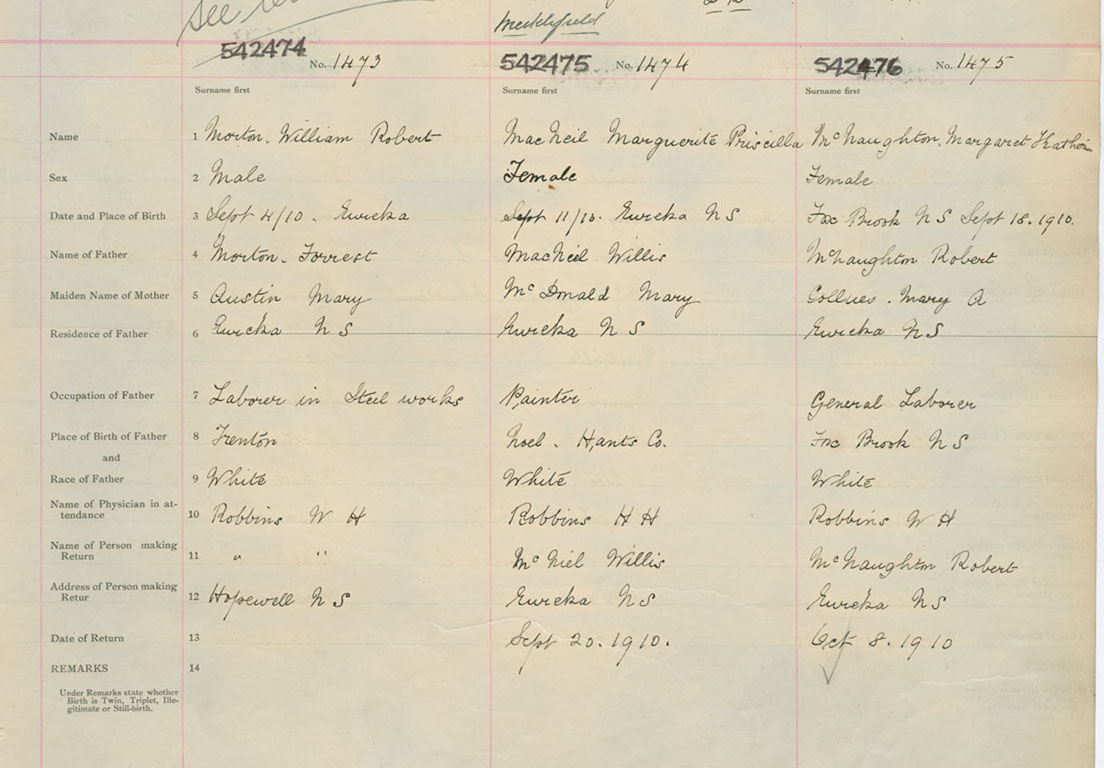 See
Meeklefield
542474 No. 1473 542475 No. 1474 542476 No. 1475
Surname first Surname first Surname first
Name 1 Morton. William Robert MacNeil Marguerite Priscilla McNaughton. Margaret
Sex 2 Male Female Female
Date and Place of Birth 3 Sept 4/10 - Eureka Sept 11/10. Eureka N S Fox Brook N S Sept 18. 1910.
Name of Father 4 Morton. Forrest MacNeil Willis McNaughton Robert
Maiden Name of Mother 5 Austin Mary McDonald Mary Mary A
Residence of Father 6 Eureka N S Eureka N S Eureka N S
Occupation of Father 7 Laborer in Steel works Painter General Laborer
Place of Birth of Father 8 Trenton Noel. Hants Co. Fox Brook N S
and
Race of Father 9 White White White
Name of Physician in at-
tendance 10 Robbins W H Robbins H H Robbins W H
Name of Person making
Return 11 " " McNiel Willis McNaughton Robert
Address of Person making
Retur 12 Hopewell N S Eureka N S Eureka N S
Date of Return 13 Sept 20. 1910. Oct 8. 1910
REMARKS 14
Under Remarks state whether
Birth is Twin, Triplet, Ille-
gitimate or Still-birth.